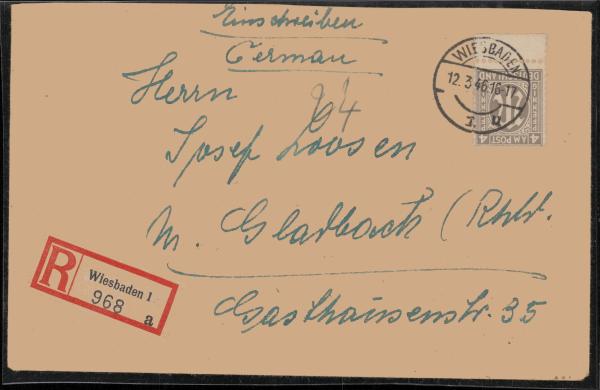 Einschreiben
German
Herrn
Josef Loosen
M. Gladbach (Rhld.
Gasthausenstr. 35
WIESBADEN
12.3.46.16-17
1 u
DEUTSCHLAND
PFENNIG
4 AM POST 4
R Wiesbaden 1
968 a